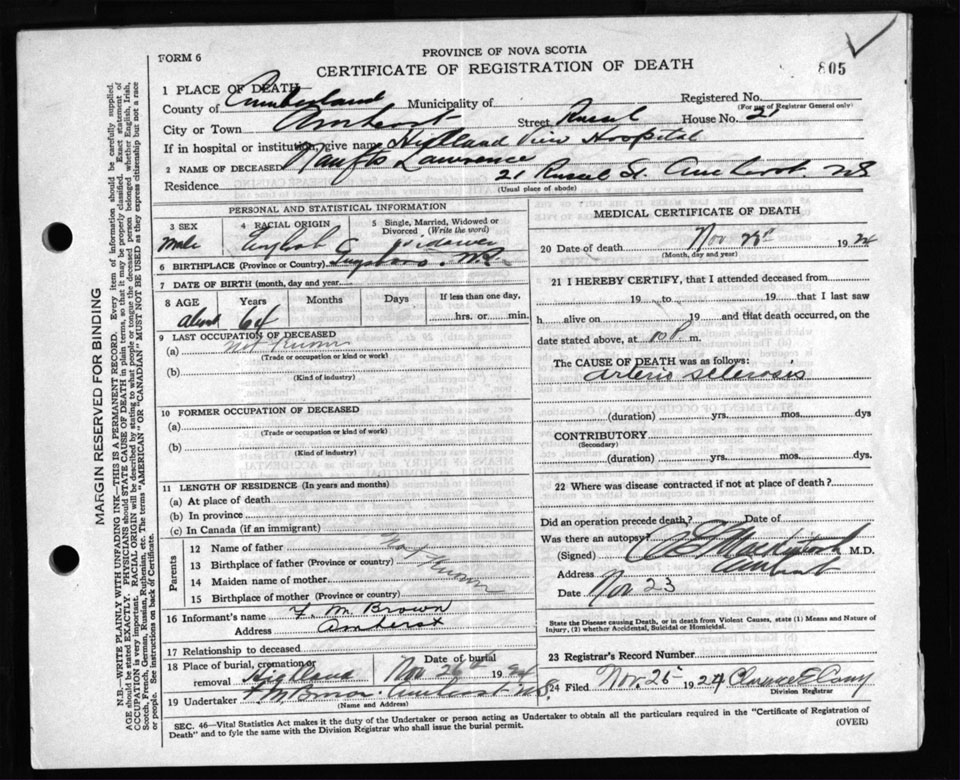 PROVINCE OF NOVA SCOTIA
FORM 6
CERTIFICATE OF REGISTRATION OF DEATH
805
1 PLACE OF DEATH
County of Cumberland Municipality of Registered No.
(For use of Registrar General only)
City or Town Amherst Street Russel House No. 21
If in hospital or institution, give name Highland View Hospital
2 NAME OF DECEASED Lawrence
Residence 21 Russel St. Amherst NS
(Usual place of abode)
PERSONAL AND STATISTICAL INFORMATION
3 SEX 4 RACIAL ORIGIN 5 Single, Married, Widowed or Divorced (Write the word)
Male English widower
6 BIRTHPLACE (Province or Country)
7 DATE OF BIRTH (month, day and year)
8 AGE Years Months Days If less than one day,
about 64 hrs. or min.
9 LAST OCCUPATION OF DECEASED
(a) Not Known
(Trade or occupation or kind or work)
(b)
(Kind of industry)
10 FORMER OCCUPATION OF DECEASED
(a)
(Trade or occupation or kind of work)
(b)
(Kind of industry)
11 LENGTH OF RESIDENCE (In years and months)
(a) At place of death
(b) In province
(c) In Canada (if an immigrant)
Parents
12 Name of father
13 Birthplace of father (Province or country)
14 Maiden name of mother
15 Birthplace of mother (Province or country)
Not Known
16 Informant's name F. M. Brown
Address Amherst
17 Relationship to deceased
18 Place of burial, cremation or removal Highland Date of burial Nov 26th 1924
19 Undertaker F M Brown Amherst N.S.
(Name and Address)
MEDICAL CERTIFICATE OF DEATH
20 Date of death Nov 1924
(Month, day and year)
21 I HEREBY CERTIFY, that I attended deceased from
19 to 19 that I last saw
h alive on 19 and that death occurred, on
date stated above, at 10 P. m.
The CAUSE OF DEATH was as follows:
arterio sclerosis
(duration) yrs. mos. dys
CONTRIBUTORY
(Secondary)
(duration) yrs. mos. dys.
22 Where was disease contracted if not at place of death?
Did an operation precede death? Date of
Was there an autopsy?
(Signed) M.D.
Address Amherst
Date Nov 23
State the Disease causing Death, or in death from Violent Causes, state (1) Means and Nature of Injury, (2) whether Accidental, Suicidal or Homicidal.
23 Registrar's Record Number
24 Filed Nov. 25 1924
Division Registrar
SEC. 46—Vital Statistics Act makes it the duty of the Undertaker or person acting as Undertaker to obtain all the particulars required in the "Certificate of Registration of
Death" and to fyle the same with the Division Registrar who shall issue the burial permit. (OVER)
MARGIN RESERVED FOR BINDING
N.B.—WRITE PLAINLY WITH UNFADING INK—THIS IS A PERMANENT RECORD. Every item of information should be carefully supplied.
AGE should be stated EXACTLY. PHYSICIANS should STATE CAUSE OF DEATH in plain terms, so that it may be properly classified. Exact statement of
OCCUPATION is very important. RACIAL ORIGIN will be described by stating to what people or tongue the deceased person belonged whether English, Irish,
Scotch, French, German, Russian, Ruthenian, etc. The terms "AMERICAN" OR "CANADIAN" MUST NOT BE USED as they express citizenship but not a race
or people. See instructions on back of Certificate.